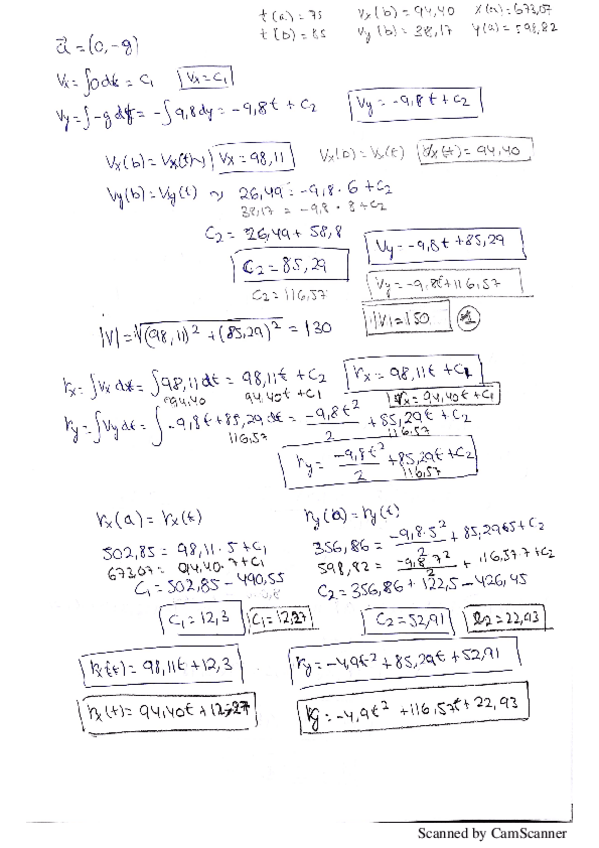 t(a) = 7s   vx(b) = 94,40   x(a) = 673,07
t(b) = 8s   vy(b) = 38,17   y(a) = 598,82
a⃗ = (0, -g)
Vx = ∫0dt = C1   Vx = C1
Vy = ∫-g dt = -∫9,8dy = -9,8t + C2   Vy = -9,8t + C2
Vx(b) = Vx(t) ~ Vx = 98,11   Vx(b) = Vx(t)   Vx(t) = 94,40
Vy(b) = Vy(t) ~ 26,49 = -9,8 · 6 + C2
38,17 = -9,8 · 8 + C2
C2 = 26,49 + 58,8
Vy = -9,8t + 85,29
C2 = 85,29
Vy = -9,8t + 116,57
C2 = 116,57
|V| = √(98,11)² + (85,29)² = 130   |V| = 150
rx = ∫Vx dt = ∫98,11 dt = 98,11t + C2   rx = 98,11t + C1
94,40   94,40t + C1   rx = 94,40t + C1
ry = ∫Vy dt = ∫-9,8t + 85,29 dt = -9,8t²/2 + 85,29t + C2
116,57   116,57
ry = -9,8t²/2 + 85,29t + C2
116,57
rx(a) = rx(t)   ry(a) = ry(t)
502,85 = 98,11 · 5 + C1   356,86 = -9,8·5²/2 + 85,29·5 + C2
673,07 = 94,40 · 7 + C1   598,82 = -9,8·7²/2 + 116,57·7 + C2
C1 = 502,85 - 490,55   C2 = 356,86 + 122,5 - 426,45
C1 = 12,3   C1 = 12,27   C2 = 52,91   C2 = 22,93
rx(t) = 98,11t + 12,3   ry = -4,9t² + 85,29t + 52,91
rx(t) = 94,40t + 12,27   ry = -4,9t² + 116,57t + 22,93
Scanned by CamScanner